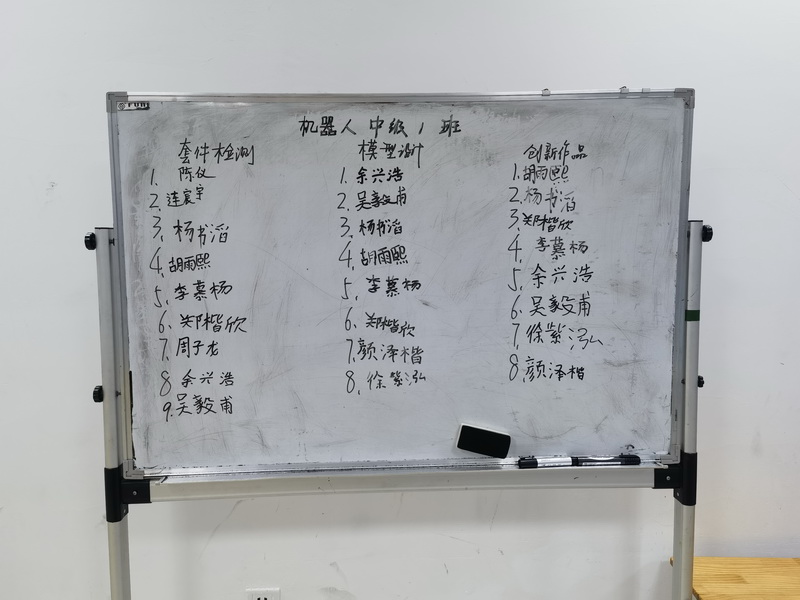 机器人中级1班
套件检测
1. 陈仪
2. 连寰宇
3. 杨书滔
4. 胡雨熙
5. 李慕杨
6. 郑楷欣
7. 周子龙
8. 余兴浩
9. 吴毅甫
模型设计
1. 余兴浩
2. 吴毅甫
3. 杨书滔
4. 胡雨熙
5. 李慕杨
6. 郑楷欣
7. 颜泽楷
8. 徐紫泓
创新作品
1. 胡雨熙
2. 杨书滔
3. 郑楷欣
4. 李慕杨
5. 余兴浩
6. 吴毅甫
7. 徐紫泓
8. 颜泽楷